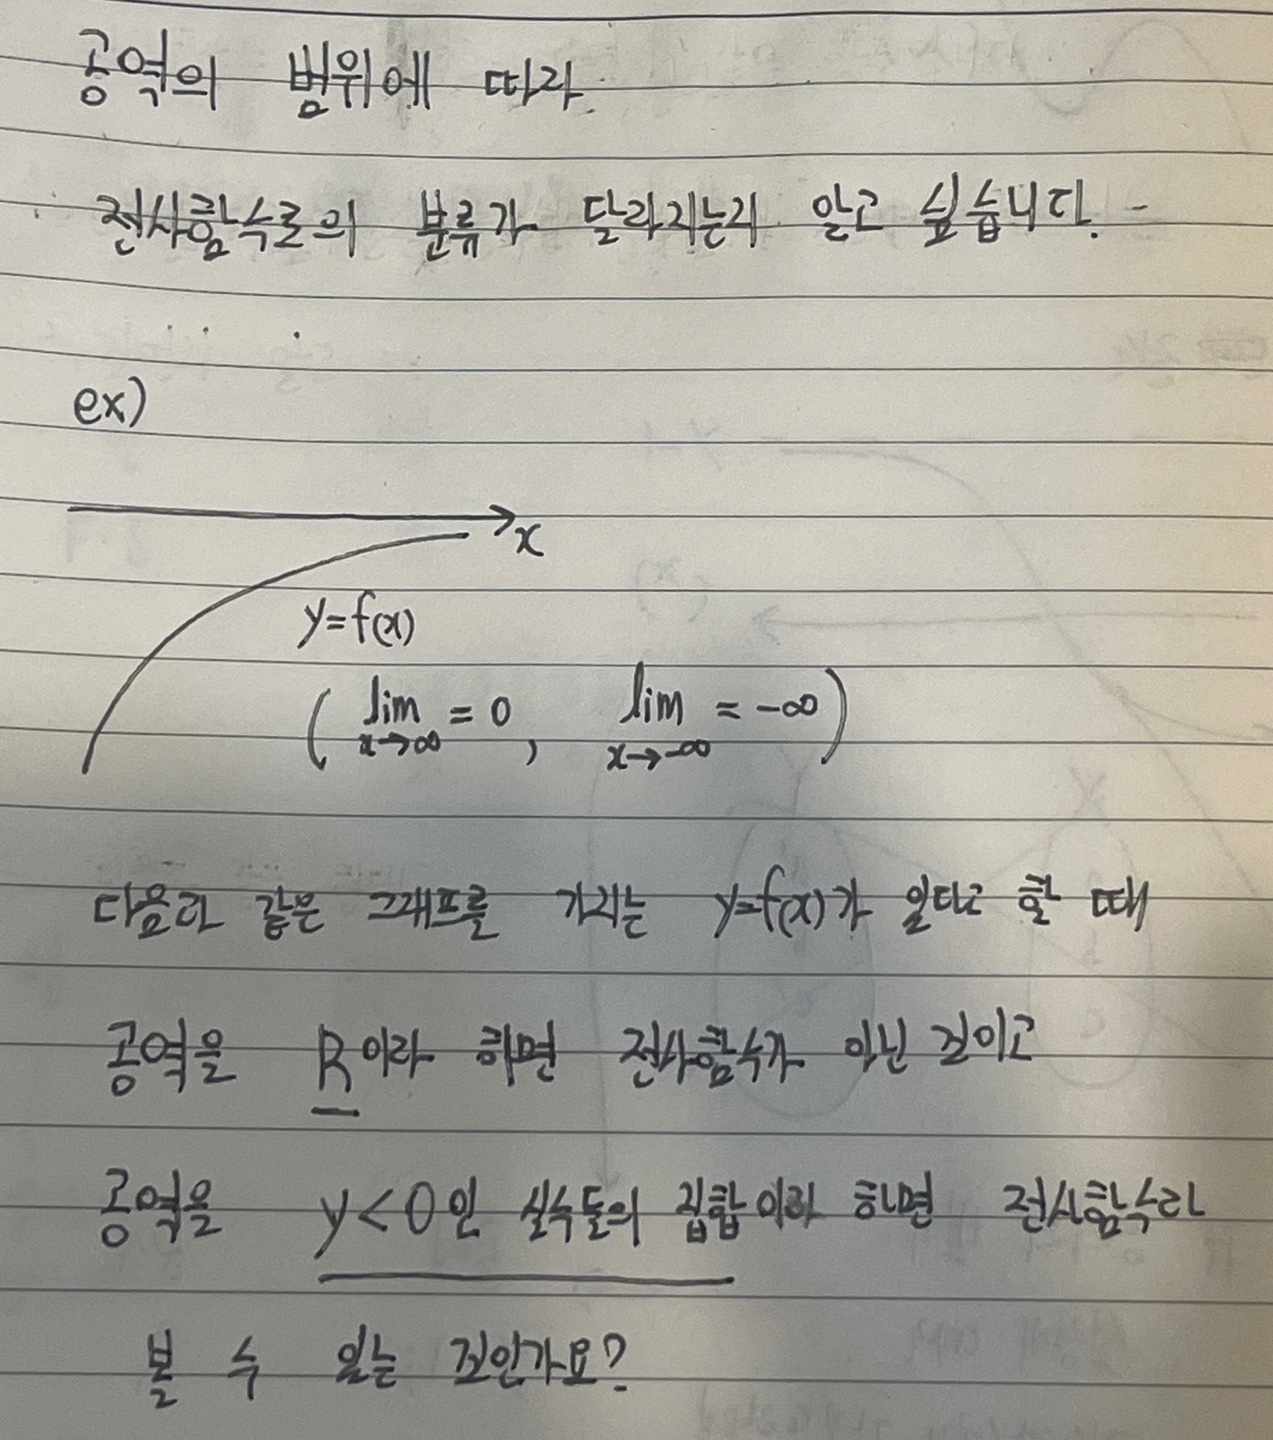 공역의 범위에 따라
전사함수로의 분류가 달라지는지 알고 싶습니다.
ex)
x
y=f(x)
( lim x→∞ = 0, lim x→-∞ = -∞ )
다음과 같은 그래프를 가지는 y=f(x)가 있다고 할 때
공역을 R이라 하면 전사함수가 아닌 것이고
공역을 y<0인 실수들의 집합이라 하면 전사함수라
볼 수 있는 것인가요?